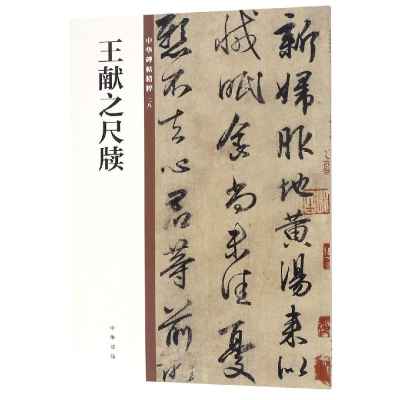 王献之尺牍
中华碑帖精粹
中华书局
新婦服地黄湯来似
减眠食尚未佳憂
懸不去心君等前所